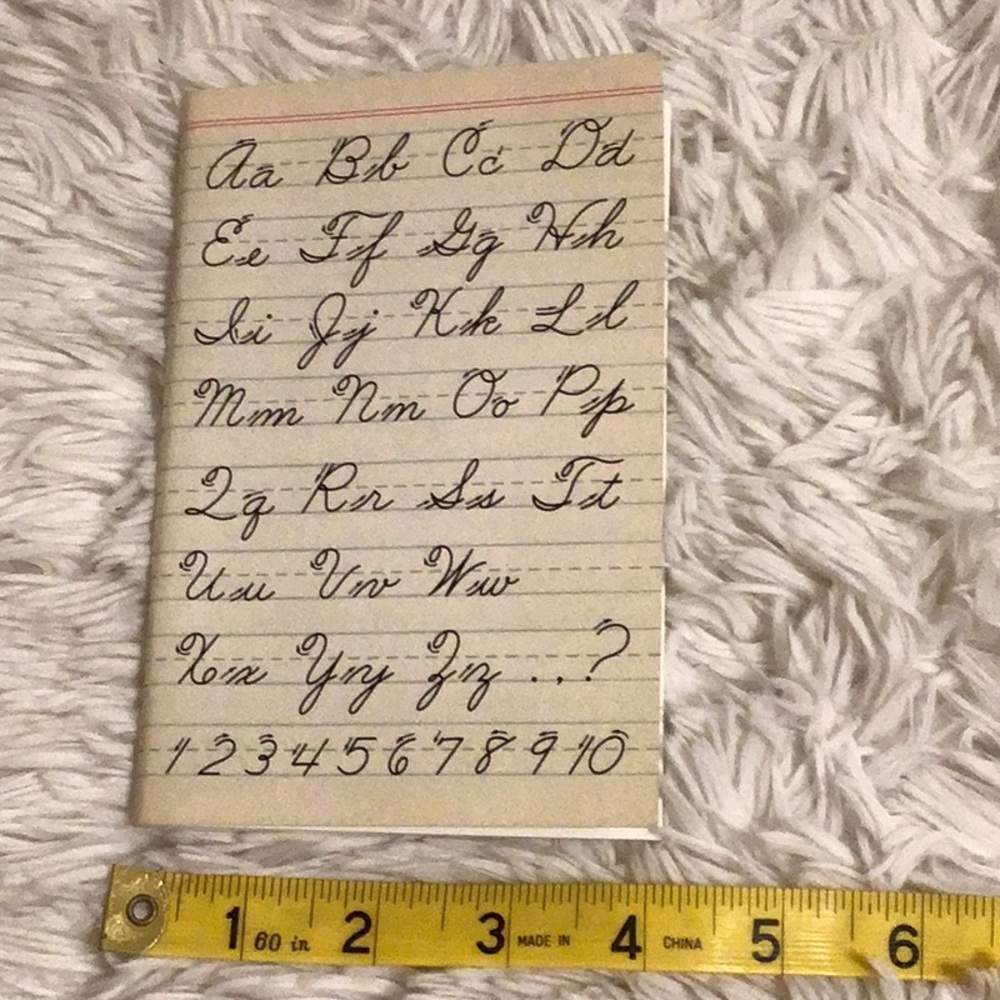 Aa Bb Cc Dd
Ee Ff Gg Hh
Ii Jj Kk Ll
Mm Nn Oo Pp
Qq Rr Ss Tt
Uu Vv Ww
Xx Yy Zz . , . ?
1 2 3 4 5 6 7 8 9 10
1 60 in 2 3 MADE IN 4 CHINA 5 6